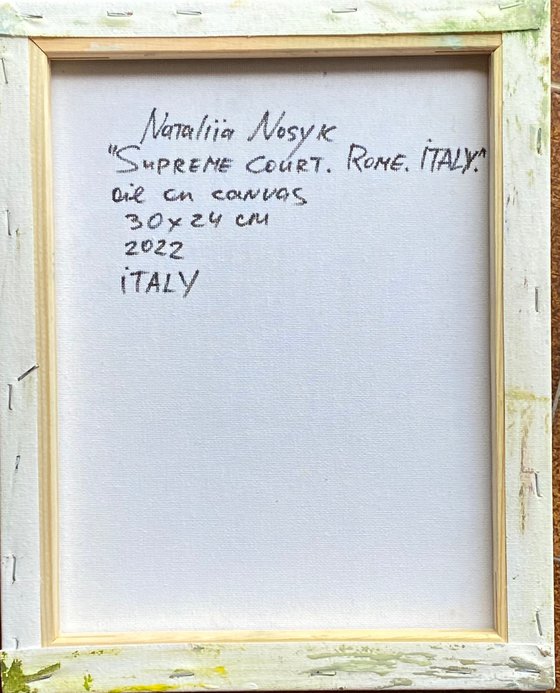 Nataliia Nosyk
"Supreme Court. Rome. Italy."
oil on canvas
30x24 cm
2022
iTALY